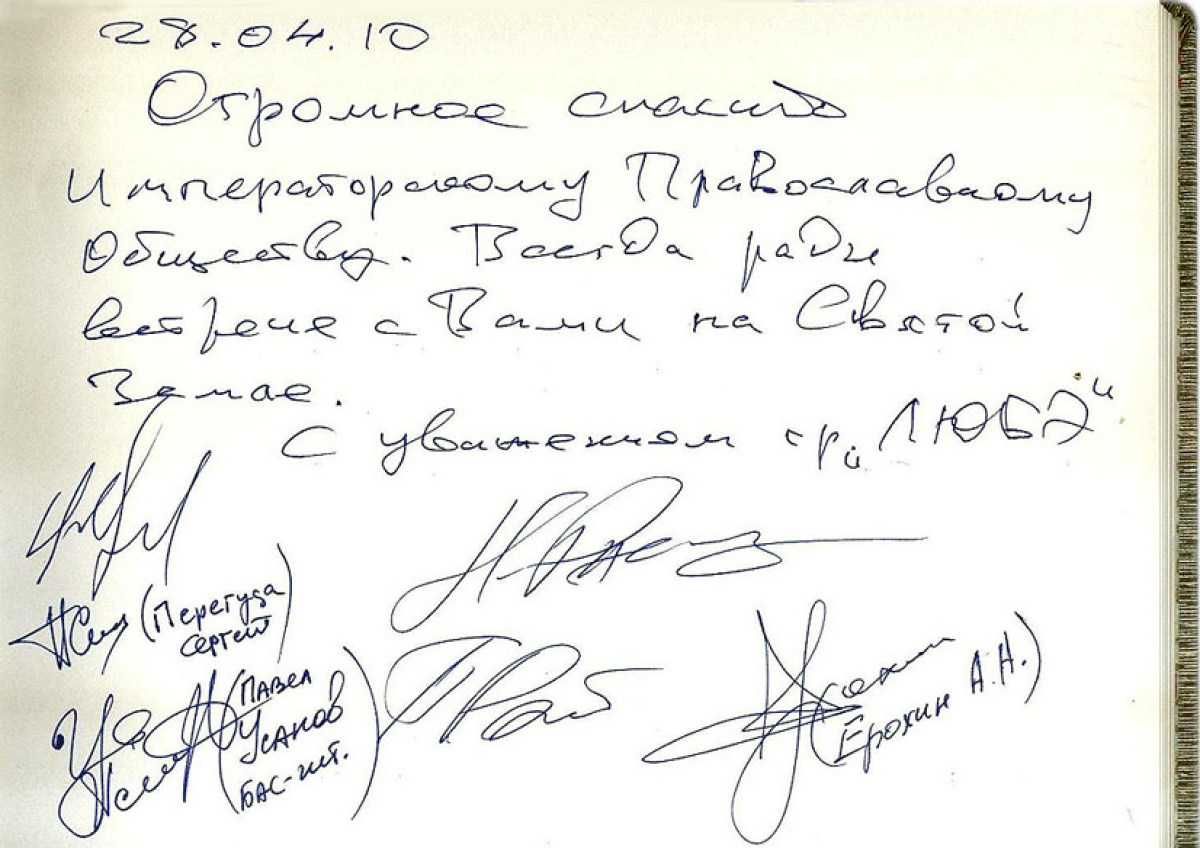 28.04.10
Огромное спасибо
Императорскому Православному
Обществу. Всегда рады
встрече с Вами на Святой
Земле.
С уважением гр. „ЛЮБЭ"
(Перегуда
Сергей)
(Павел
Усанов
бас-гит.)
(Ерохин А.Н.)